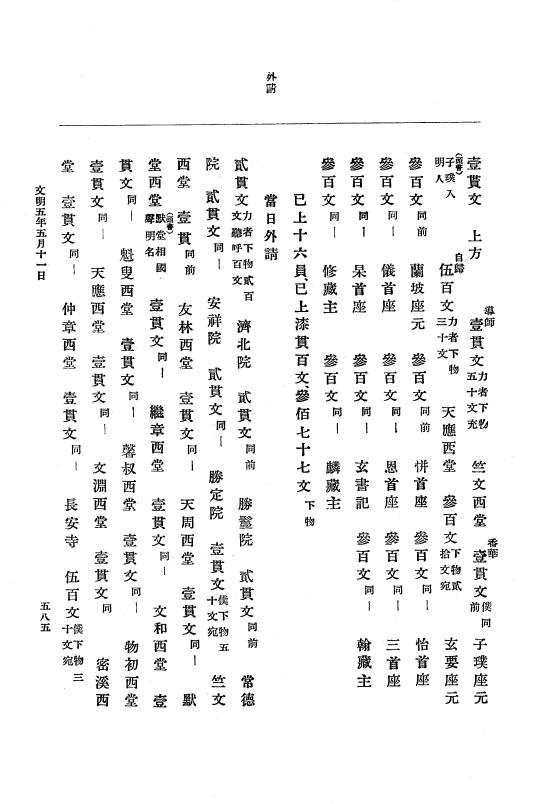 外請
壹貫文 上方 導師 壹貫文 力者下物五十文充 竺文西堂 香華 壹貫文 僕同前 子璞座元
(頭書)子璞入明人 自歸 伍百文 力者下物三十文 天應西堂 參百文 下物貳拾文宛 玄要座元
參百文 同前 蘭坡座元 參百文 同前 恲首座 參百文 同ー 怡首座
參百文 同ー 儀首座 參百文 同ー 恩首座 參百文 同ー 三首座
參百文 同ー 杲首座 參百文 同ー 玄書記 參百文 同ー 翰藏主
參百文 同ー 修藏主 參百文 同ー 麟藏主
已上十六員、已上漆貫百文、參佰七十七文 下物
當日外請
貳貫文 力者下物貳百文廳呼百文 濟北院 貳貫文 同前 勝鬘院 貳貫文 同前 常德
院 貳貫文 同ー 安祥院 貳貫文 同ー 勝定院 壹貫文 僕下物五十文宛 竺文
西堂 壹貫 同前 友林西堂 壹貫文 同ー 天周西堂 壹貫文 同ー 默
堂西堂 (頭書)默堂相國聲明名 壹貫文 同ー 繼章西堂 壹貫文 同ー 文和西堂 壹
貫文 同ー 魁叟西堂 壹貫文 同ー 馨叔西堂 壹貫文 同ー 物初西堂
壹貫文 同ー 天應西堂 壹貫文 同ー 文淵西堂 壹貫文 同 密溪西
堂 壹貫文 同ー 仲章西堂 壹貫文 同ー 長安寺 伍百文 僕下物三十文宛
文明五年五月十一日
五八五